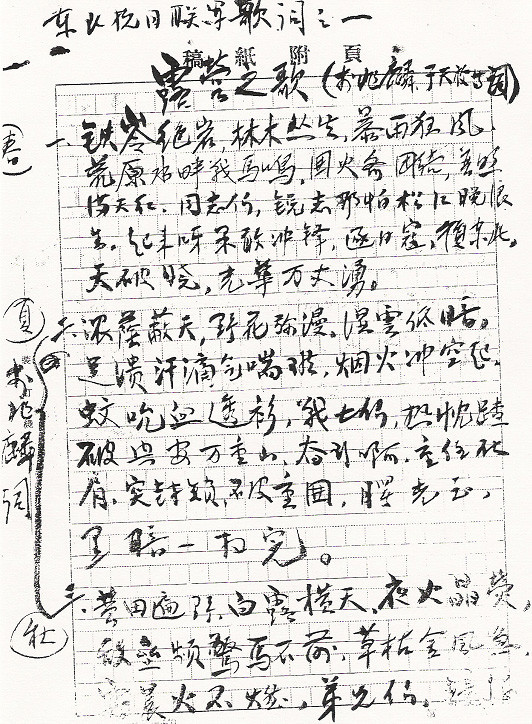 东北抗日联军歌词之一
稿紙附頁
露营之歌(李兆麟、于天放等词)
一
(春)
一、铁岭绝岩,林木丛生,暴雨狂风,
荒原水畔战马鸣,围火齐团结,普照
满天红。同志们,锐志那怕松江晚浪
生。起来呀果敢冲锋,逐日寇,复东北,
天破晓,光华万丈涌。
(夏)
李兆麟词
二、浓荫蔽天,野花弥漫,湿雲低暗。
足溃汗滴气喘难,烟火冲空起,
蚊吮血透衫,战士们,热忱踏
破兴安万重山,奋斗啊,重任在
肩,突封锁,破重围,曙光至,
黑暗一扫完。
(秋)
三、荒田遍野,白露横天,夜火晶莹,
敌垒频驚马不前,草枯金风急,
晨火不燃,弟兄们,